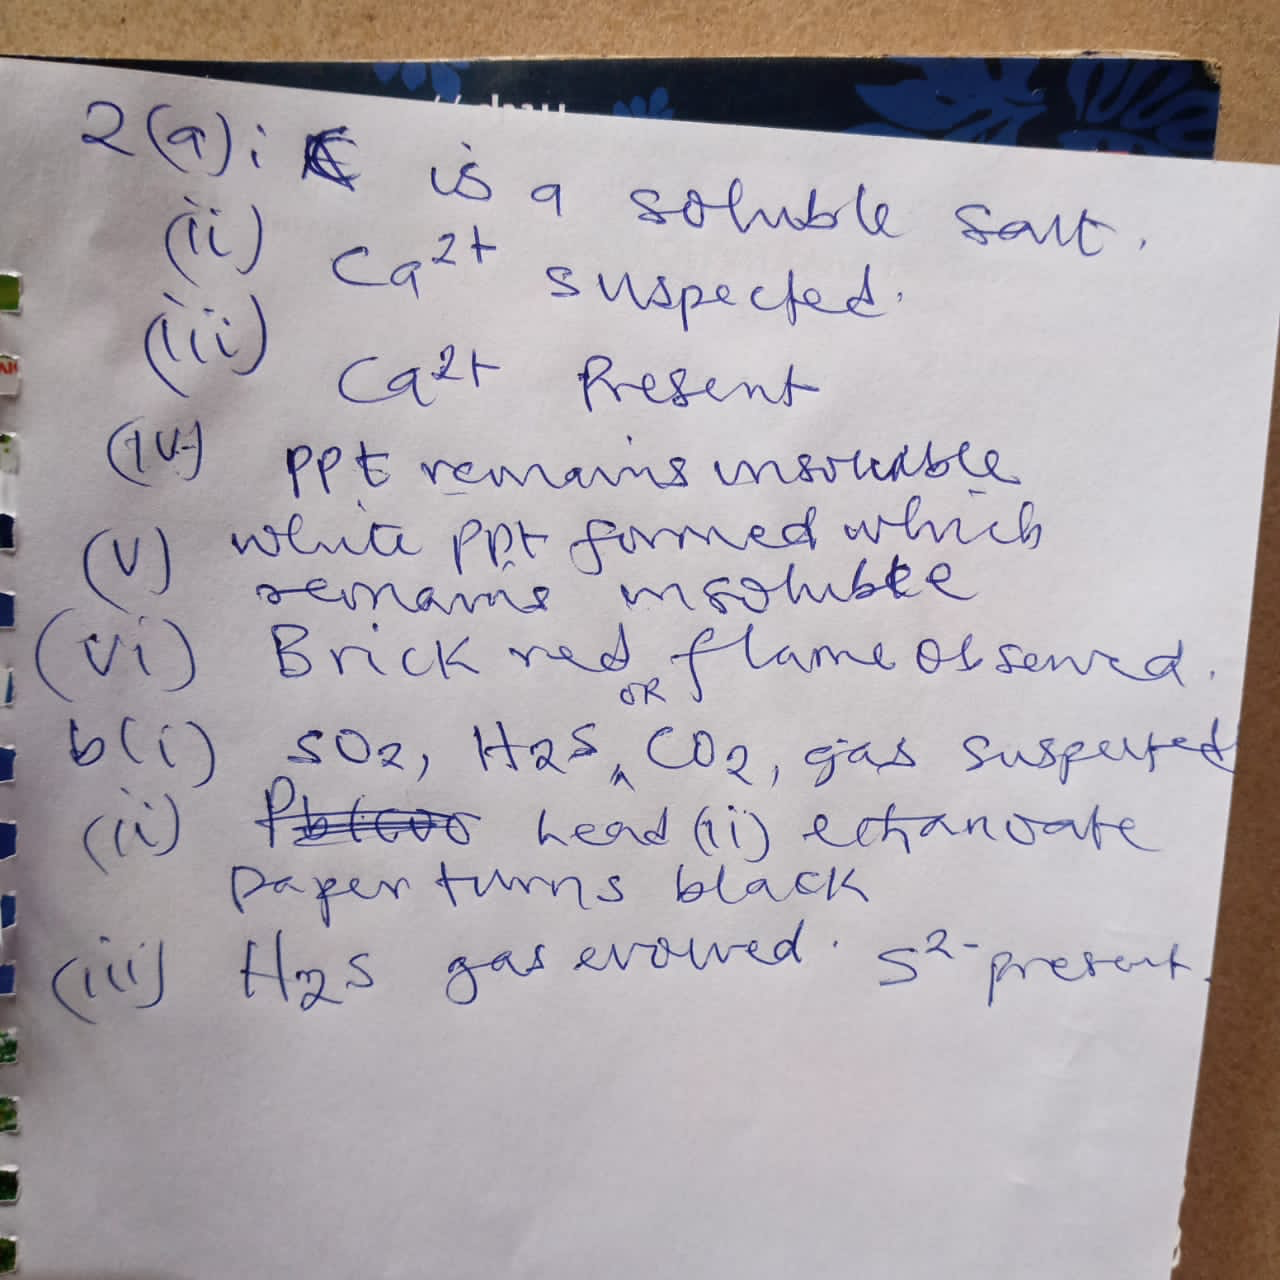 2(a)i C is a soluble salt.
(ii) Ca2+ suspected.
(iii) Ca2+ Present
(iv) ppt remains insoluble
(v) white ppt formed which
remains insoluble
(vi) Brick red flame observed.
b(i) SO2, H2S OR CO2, gas suspected
(ii) lead (ii) ethanoate
paper turns black
(iii) H2S gas evolved. S2- present.